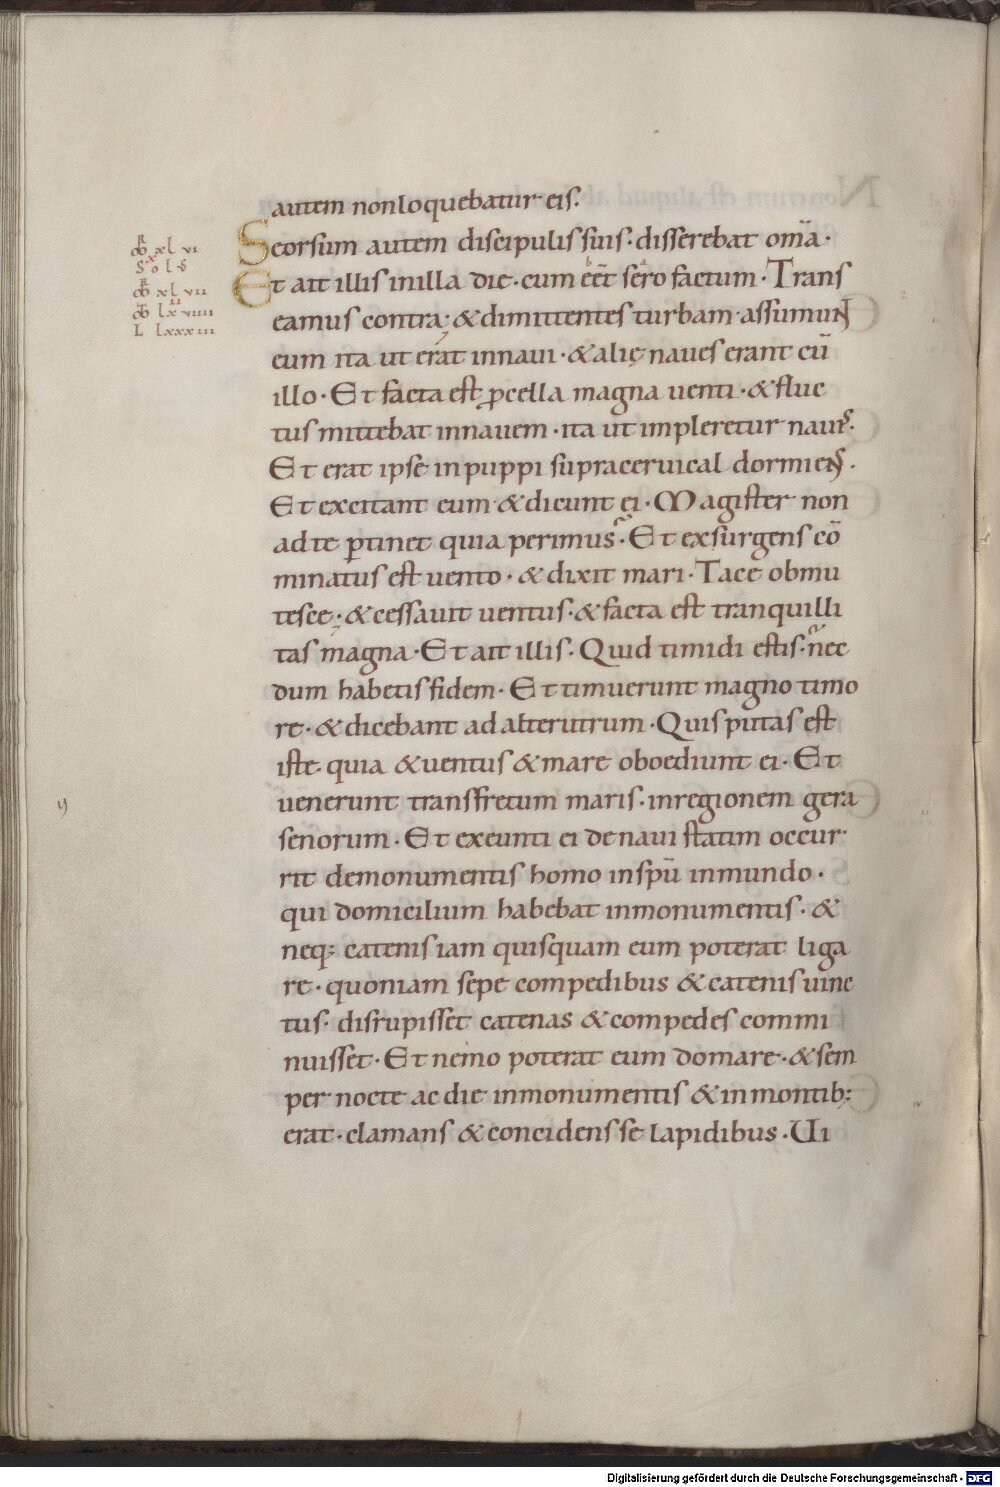 autem non loquebatur eis.
Seorsum autem discipulis suis· disserebat om̄a·
R
xl vi
Et ait illis in illa die· cum eēt sero factum· Trans
xl vii
eamus contra; & dimittentes turbam· assumunt
lx viiii
L lxxxiii
eum ita ut erat in naui· & alię naues erant cū
illo· Et facta est ꝓcella magna uenti· & fluc
tus mittebat in nauem· ita ut impleretur nauis·
Et erat ipse in puppi supra ceruical dormiens·
Et excitant eum & dicunt ei· Magister non
ad te ꝑtinet quia perimus· Et exsurgens cō
minatus est uento· & dixit mari· Tace obmu
tesce; & cessauit uentus· & facta est tranquilli
tas magna· Et ait illis· Quid timidi estis· nec
dum habetis fidem· Et timuerunt magno timo
re· & dicebant ad alterutrum· Quis putas est
iste· quia & uentus & mare oboediunt ei· Et
uenerunt transfretum maris· in regionem gera
senorum· Et exeunti ei de naui statim occur
rit de monumentis homo in spū inmundo·
qui domicilium habebat in monumentis· &
neq; catenis iam quisquam eum poterat liga
re· quoniam sepe compedibus & catenis uinc
tus· disrupisset catenas & compedes commi
nuisset· Et nemo poterat eum domare· & sem
per nocte ac die in monumentis & in montib;
erat· clamans & concidens se lapidibus· Ui
Digitalisierung gefördert durch die Deutsche Forschungsgemeinschaft - DFG